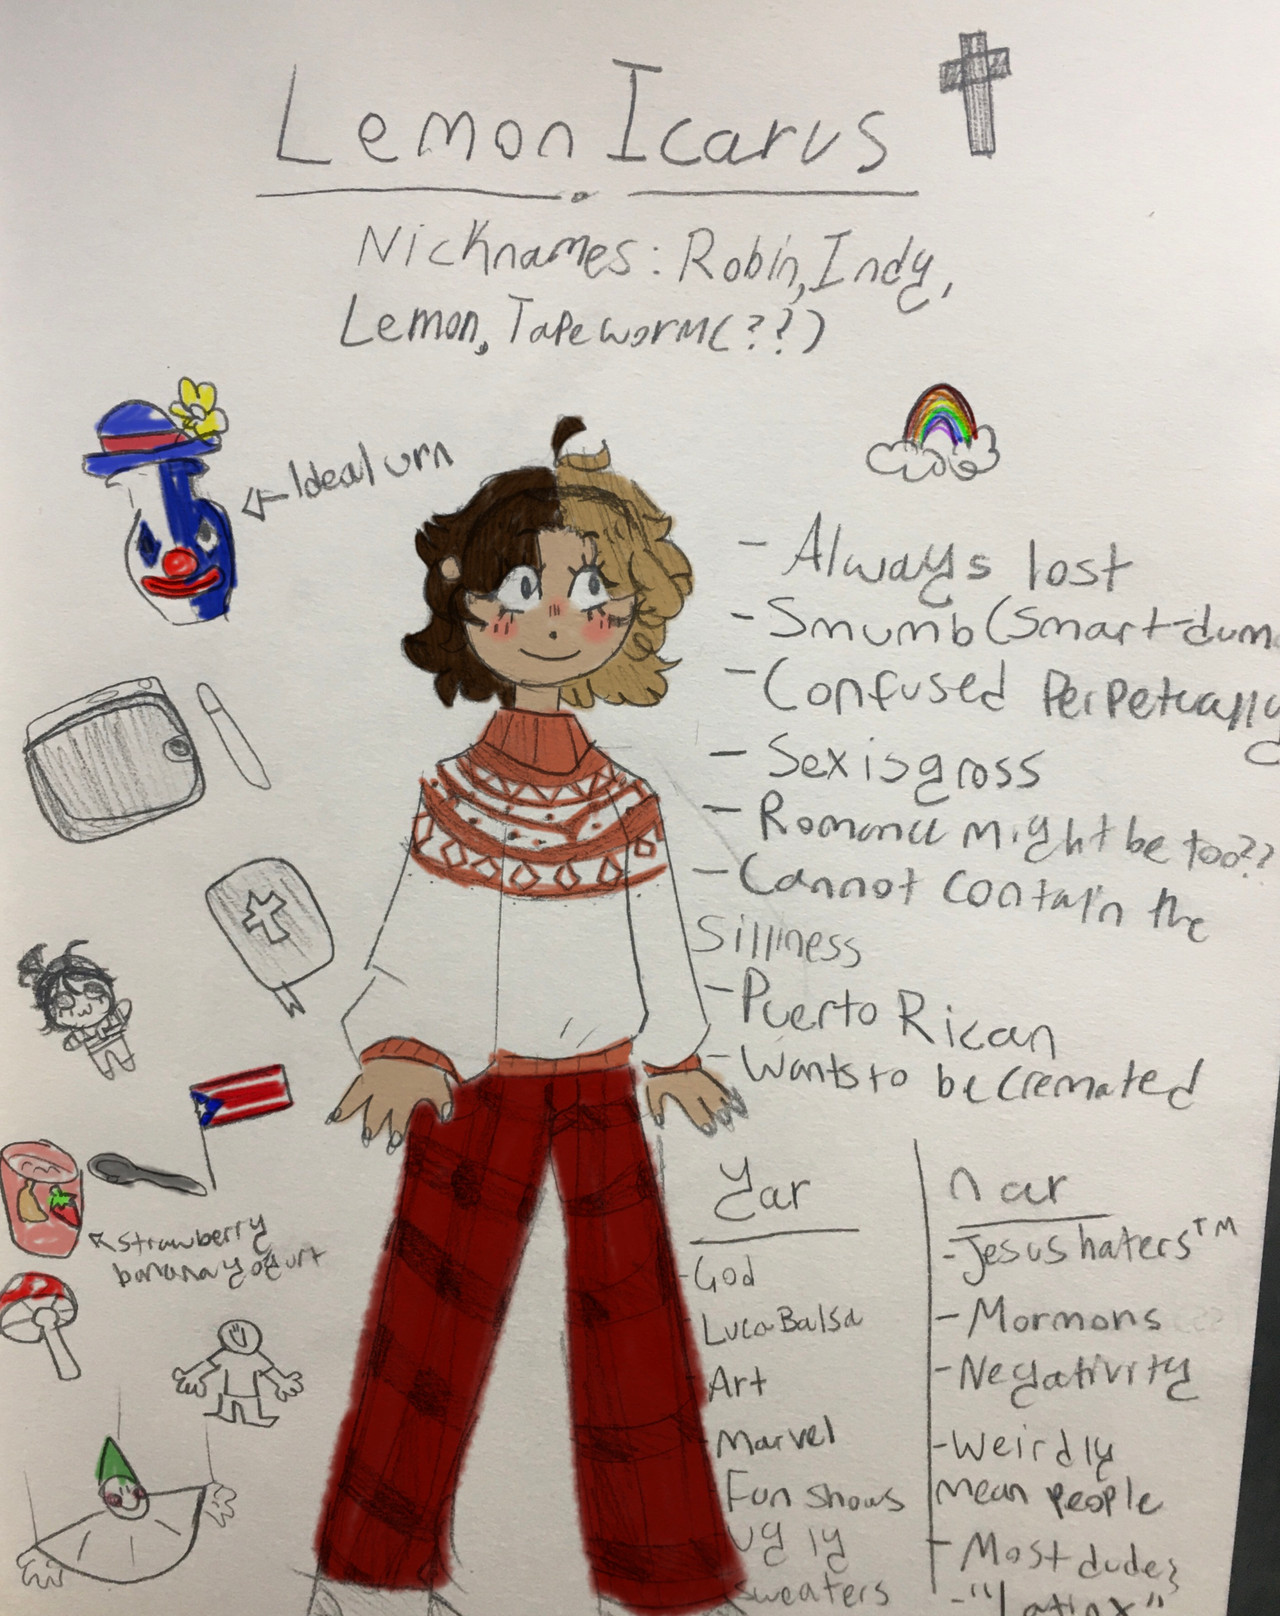 Lemon Icarus
Nicknames: Robin, Indy,
Lemon, Tapeworm(??)
Ideal urn
- Always lost
- Smumb (Smart-dum
- Confused Perpetually
- Sex is gross
- Romance might be too??
- Cannot contain the
silliness
- Puerto Rican
- Wants to be cremated
strawberry
banana yogurt
yar
- God
- Luca Balsa
- Art
- Marvel
Fun shows
Ugly
sweaters
nar
- Jesus haters™
- Mormons
- Negativity
- Weirdly
mean people
- Most dudes
- "Latinx"